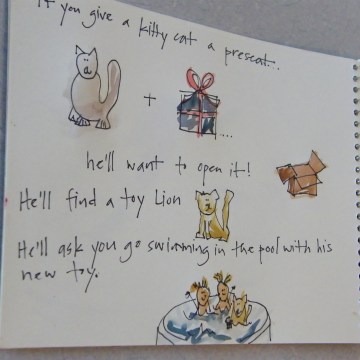 If you give a kitty cat a prescat..
+
...
he'll want to open it!
He'll find a toy Lion
He'll ask you go swimming in the pool with his
new toy.